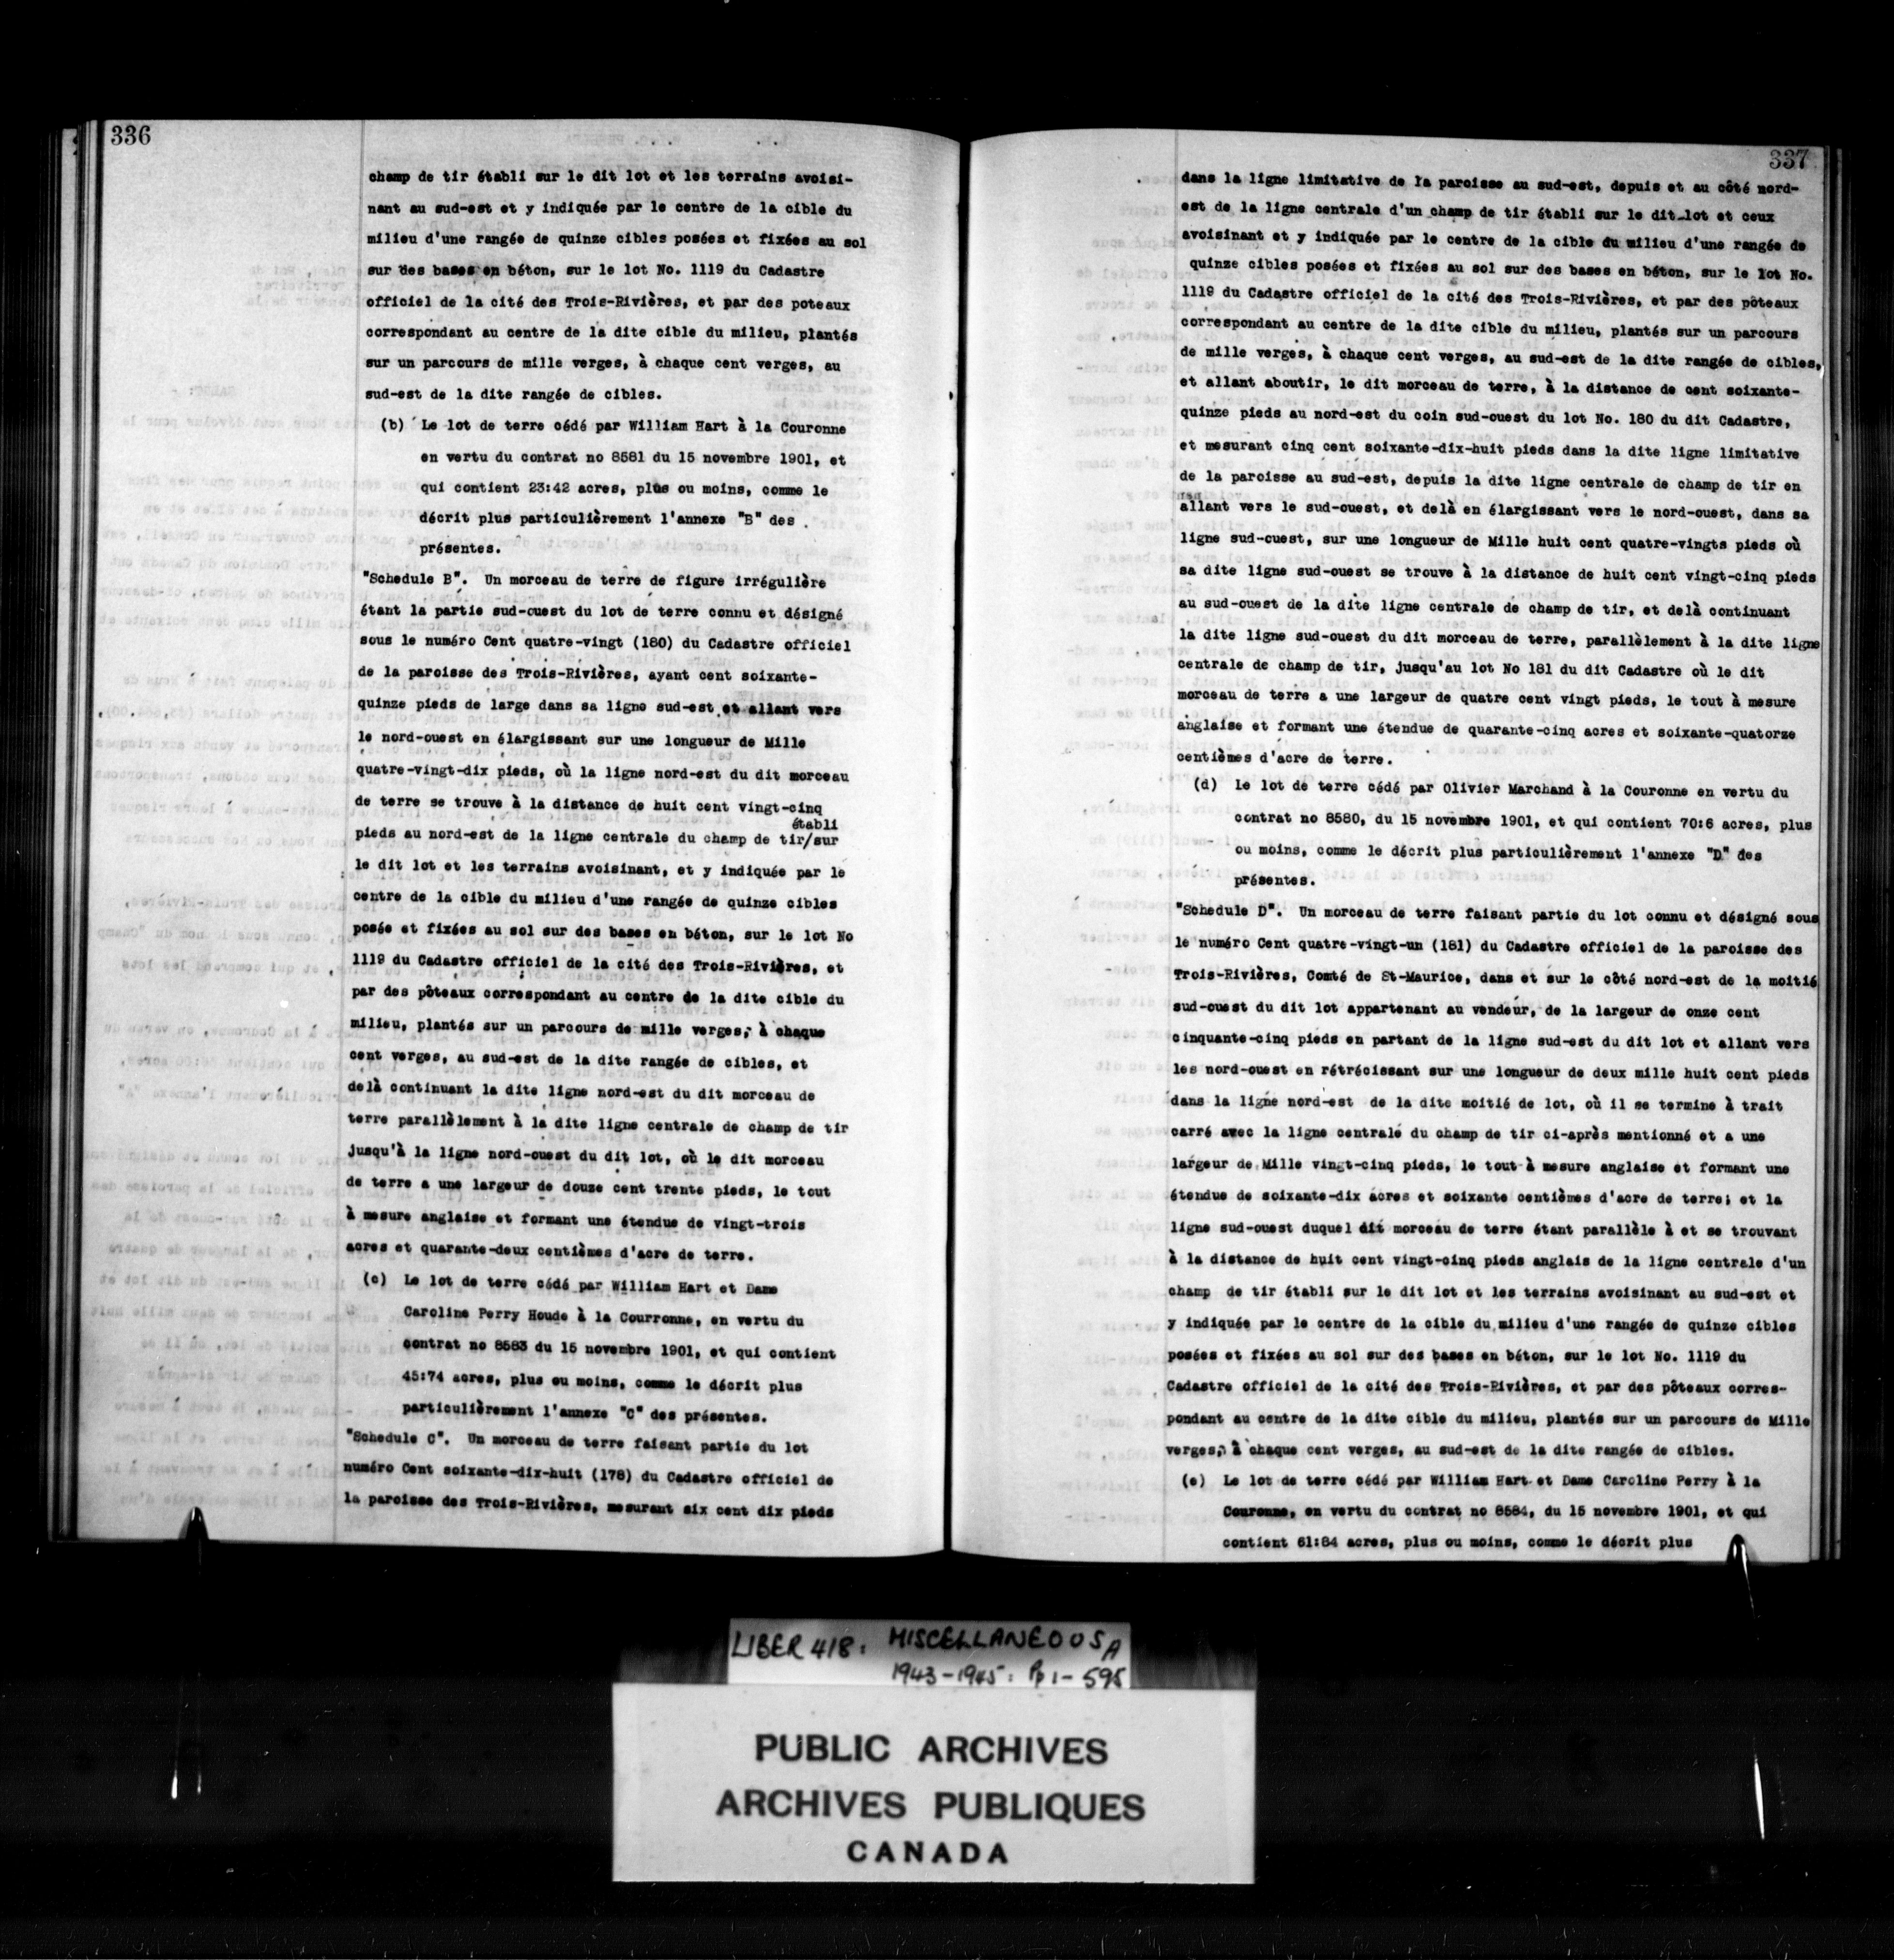 336
champ de tir établi sur le dit lot et les terrains avoisi-
nant au sud-est et y indiquée par le centre de la cible du
milieu d'une rangée de quinze cibles posées et fixées au sol
sur des bases en béton, sur le lot No. 1119 du Cadastre
officiel de la cité des Trois-Rivières, et par des poteaux
correspondant au centre de la dite cible du milieu, plantés
sur un parcours de mille verges, à chaque cent verges, au
sud-est de la dite rangée de cibles.
(b) Le lot de terre cédé par William Hart à la Couronne
en vertu du contrat no 8581 du 15 novembre 1901, et
qui contient 23:42 acres, plus ou moins, comme le
décrit plus particulièrement l'annexe "B" des
présentes.
"Schedule B". Un morceau de terre de figure irrégulière
étant la partie sud-ouest du lot de terre connu et désigné
sous le numéro Cent quatre-vingt (180) du Cadastre officiel
de la paroisse des Trois-Rivières, ayant cent soixante-
quinze pieds de large dans sa ligne sud-est et allant vers
le nord-ouest en élargissant sur une longueur de Mille
quatre-vingt-dix pieds, où la ligne nord-est du dit morceau
de terre se trouve à la distance de huit cent vingt-cinq
établi
pieds au nord-est de la ligne centrale du champ de tir/sur
le dit lot et les terrains avoisinant, et y indiquée par le
centre de la cible du milieu d'une rangée de quinze cibles
posée et fixées au sol sur des bases en béton, sur le lot No
1119 du Cadastre officiel de la cité des Trois-Rivières, et
par des pôteaux correspondant au centre de la dite cible du
milieu, plantés sur un parcours de mille verges, à chaque
cent verges, au sud-est de la dite rangée de cibles, et
delà continuant la dite ligne nord-est du dit morceau de
terre parallèlement à la dite ligne centrale de champ de tir
jusqu'à la ligne nord-ouest du dit lot, où le dit morceau
de terre a une largeur de douze cent trente pieds, le tout
à mesure anglaise et formant une étendue de vingt-trois
acres et quarante-deux centièmes d'acre de terre.
(c) Le lot de terre cédé par William Hart et Dame
Caroline Perry Houde à la Courronne, en vertu du
contrat no 8583 du 15 novembre 1901, et qui contient
45:74 acres, plus ou moins, comme le décrit plus
particulièrement l'annexe "C" des présentes.
"Schedule C". Un morceau de terre faisant partie du lot
numéro Cent soixante-dix-huit (178) du Cadastre officiel de
la paroisse des Trois-Rivières, mesurant six cent dix pieds
337
dans la ligne limitative de la paroisse au sud-est, depuis et au côté nord-
est de la ligne centrale d'un champ de tir établi sur le dit lot et ceux
avoisinant et y indiquée par le centre de la cible du milieu d'une rangée de
quinze cibles posées et fixées au sol sur des bases en béton, sur le lot No.
1119 du Cadastre officiel de la cité des Trois-Rivières, et par des pôteaux
correspondant au centre de la dite cible du milieu, plantés sur un parcours
de mille verges, à chaque cent verges, au sud-est de la dite rangée de cibles,
et allant aboutir, le dit morceau de terre, à la distance de cent soixante-
quinze pieds au nord-est du coin sud-ouest du lot No. 180 du dit Cadastre,
et mesurant cinq cent soixante-dix-huit pieds dans la dite ligne limitative
de la paroisse au sud-est, depuis la dite ligne centrale de champ de tir en
allant vers le sud-ouest, et delà en élargissant vers le nord-ouest, dans sa
ligne sud-ouest, sur une longueur de Mille huit cent quatre-vingts pieds où
sa dite ligne sud-ouest se trouve à la distance de huit cent vingt-cinq pieds
au sud-ouest de la dite ligne centrale de champ de tir, et delà continuant
la dite ligne sud-ouest du dit morceau de terre, parallèlement à la dite ligne
centrale de champ de tir, jusqu'au lot No 181 du dit Cadastre où le dit
morceau de terre a une largeur de quatre cent vingt pieds, le tout à mesure
anglaise et formant une étendue de quarante-cinq acres et soixante-quatorze
centièmes d'acre de terre.
(d) Le lot de terre cédé par Olivier Marchand à la Couronne en vertu du
contrat no 8580, du 15 novembre 1901, et qui contient 70:6 acres, plus
ou moins, comme le décrit plus particulièrement l'annexe "D" des
présentes.
"Schedule D". Un morceau de terre faisant partie du lot connu et désigné sous
le numéro Cent quatre-vingt-un (181) du Cadastre officiel de la paroisse des
Trois-Rivières, Comté de St-Maurice, dans et sur le côté nord-est de la moitié
sud-ouest du dit lot appartenant au vendeur, de la largeur de onze cent
cinquante-cinq pieds en partant de la ligne sud-est du dit lot et allant vers
les nord-ouest en rétrécissant sur une longueur de deux mille huit cent pieds
dans la ligne nord-est de la dite moitié de lot, où il se termine à trait
carré avec la ligne centrale du champ de tir ci-après mentionné et a une
largeur de Mille vingt-cinq pieds, le tout à mesure anglaise et formant une
étendue de soixante-dix acres et soixante centièmes d'acre de terre; et la
ligne sud-ouest duquel dit morceau de terre étant parallèle à et se trouvant
à la distance de huit cent vingt-cinq pieds anglais de la ligne centrale d'un
champ de tir établi sur le dit lot et les terrains avoisinant au sud-est et
y indiquée par le centre de la cible du milieu d'une rangée de quinze cibles
posées et fixées au sol sur des bases en béton, sur le lot No. 1119 du
Cadastre officiel de la cité des Trois-Rivières, et par des pôteaux corres-
pondant au centre de la dite cible du milieu, plantés sur un parcours de Mille
verges, à chaque cent verges, au sud-est de la dite rangée de cibles.
(e) Le lot de terre cédé par William Hart et Dame Caroline Perry à la
Couronne, en vertu du contrat no 8584, du 15 novembre 1901, et qui
contient 61:84 acres, plus ou moins, comme le décrit plus
LIBER 418: MISCELLANEOUS A
1943-1945: Pp 1-595
PUBLIC ARCHIVES
ARCHIVES PUBLIQUES
CANADA